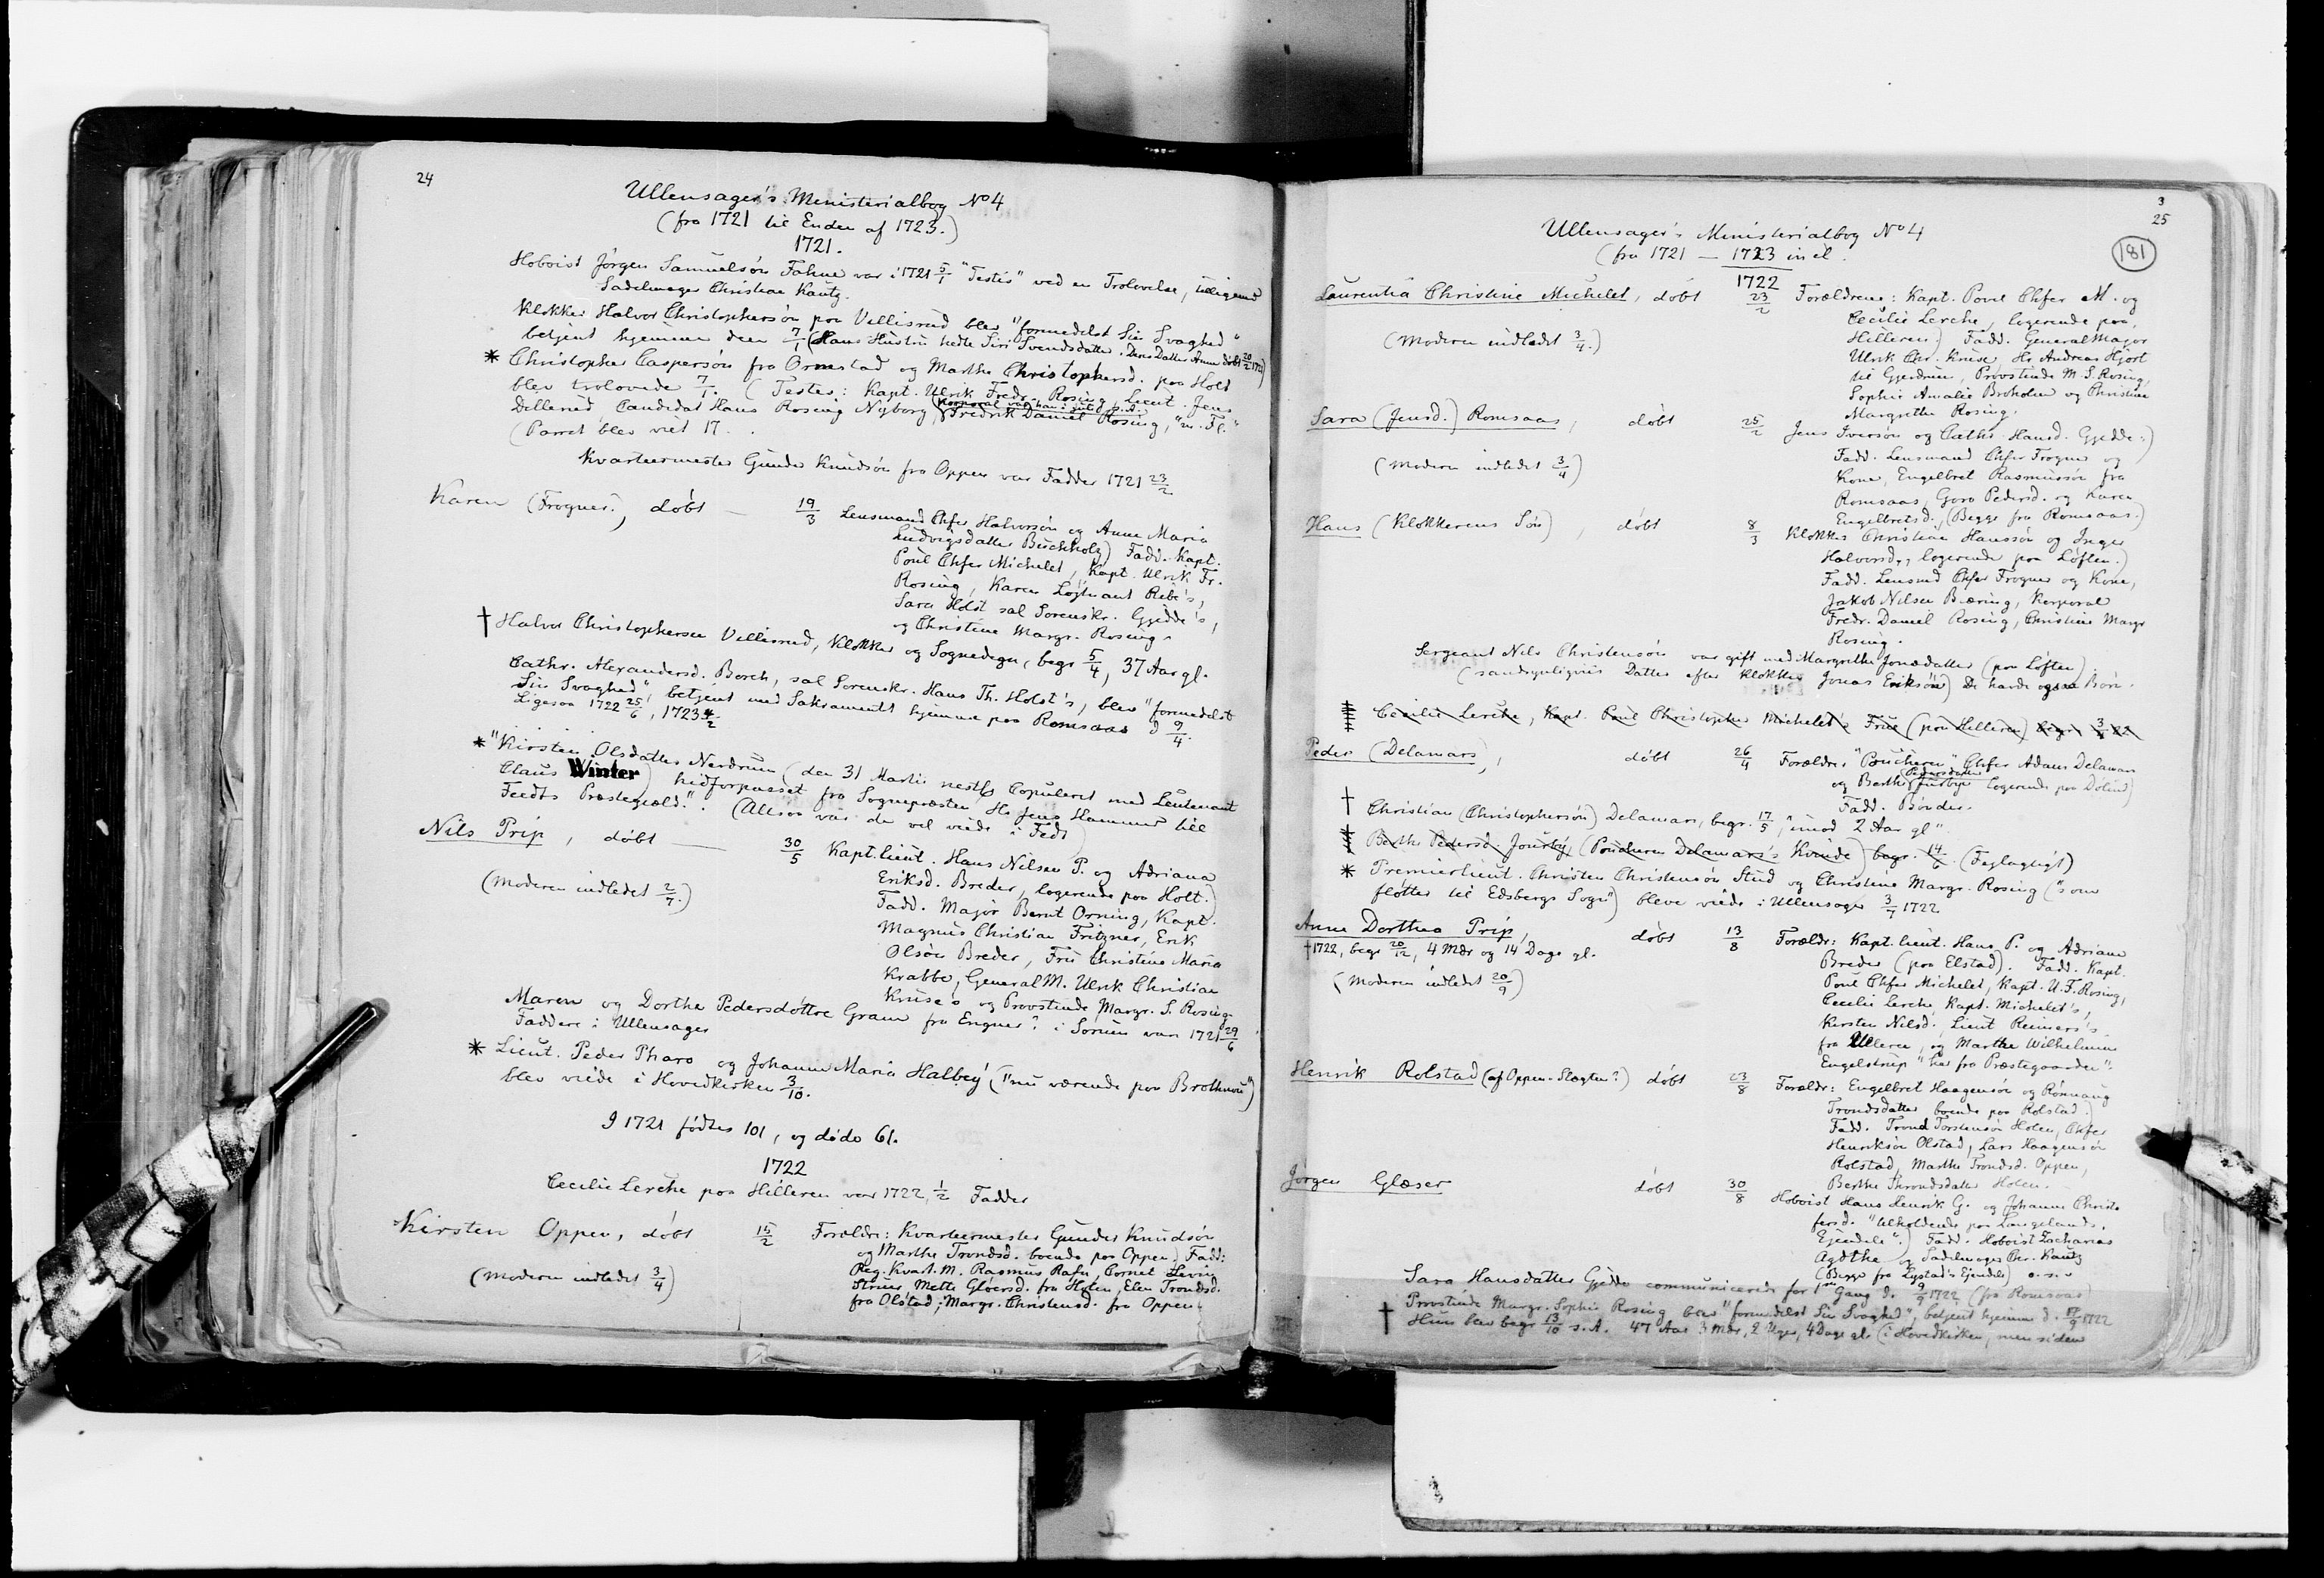 24
Ullensager's Ministerialbog No 4
(fra 1721 til Enden af 1723.)
1721.
Hoboist Jørgen Samuelsøn Fahne var i 1721 5/1 "Testis" ved en Trolovelse, tilligemed
Sadelmager Christian Kautz.
Klokker Halvor Christophersøn paa Villisrud blev "formedelst Sin Svaghed"
betjent hjemme den 7/1 (Hans Hustru hedte Siri Svendsdatter. Deres Datter Anne døbt 20/2 1721)
* Christopher Caspersøn fra Ormstad og Marthe Christophersd. paa Hold
blev trolovede 7/1. (Testes: Kapt. Ulrik Fredr. Rosing, Lieut. Jens
Dillerud, Candidat Hans Rosing Nyborg, (Korporal var han i Juli s. A.) Fredrik Daniel Rosing, "m. Fl."
(Parret blev viet 17
Kvarteermester Gunder Knudsøn fra Oppen var Fadder 1721 23/2
Karen (Frogner), døbt — 19/3 Lensmand Chfer Halvorsøn og Anne Maria
Ludvigsdatter Buchholz) Fadd. Kapt.
Poul Chfer Michelet, Kapt. Ulrik Fr.
Rosing, Karen Løjtnant Rebe's,
Sara Holst sal Sorenskr. Gjedde's,
og Christine Margr. Rosing.
† Halvor Christophersen Villisrud, Klokker og Sognedegn, begr 5/4, 37 Aar gl.
Cathr. Alexandersd. Borch, sal Sorenskr. Hans Th. Holst's, blev "formedelst
Sin Svaghed", betjent med Sakrament hjemme paa Romsaas d 9/4.
Ligesaa 1722 25/6, 1723 4/2
* "Kirsten Olsdatter Nerdrum (den 31 Martii nestl. Copuleret med Leutenant
Claus Winter) hidforpasset fra Sognepræsten Hr Jens Hammer till
Feedts Præstegield." (Altsaa var de vel viede i Fedt)
Nils Prip, døbt — 30/5 Kapt.lieut. Hans Nilsen P. og Adriana
Eriksd. Breder, logerende paa Holt.)
(Moderen indledet 2/7.) Fadd. Major Bernt Orning, Kapt.
Magnus Christian Fritzner, Erik
Olsøn Breder, Frue Christine Maria
Krabbe, General M. Ulrik Christian
Kruse's og Provstinde Margr. S. Rosing.
Maren og Dorthe Pedersdøttre Gram fra Engner? i Sorum var 1721 29/6
Faddere i Ullensager
* Lieut. Peder Pharo og Johanne Maria Halbey ("nu værende paa Brothnou")
blev viede i Hovedkirken 3/10.
I 1721 fødtes 101, og døde 61.
1722
Cecilie Lerche paa Hilleren var 1722 1/2 Fadder
Kirsten Oppen, døbt 15/2 Forældre: Kvarteermester Gunder Knudsøn
og Marthe Trondsd. boende paa Oppen) Fadd:
(Moderen indledet 3/4) Reg. Kvart. M. Rasmus Rafn, Cornet Levin
Struus, Mette Gløersd. fra Holen, Elen Trondsd.
fra Olstad, Margr. Christensd. fra Oppen.
3
25
181
Ullensager's Ministerialbog No 4
(fra 1721 — 1723 incl.
1722
Laurentia Christine Michelet, døbt 23/2 Forældrene: Kapt. Povel Chfer M. og
Cecilie Lerche, logerende paa
(Moderen indledet 3/4.) Hilleren) Fadd. General Major
Ulrik Chr. Kruse, Hr Andreas Hjort
til Gjerdrum, Provstinde M. S. Rosing,
Sophie Amalie Broholm og Christine
Margrethe Rosing.
Sara (Jensd.) Romsaas, døbt 25/2 Jens Iversøn og Cathr. Hansd. Gjedde.)
Fadd. Lensmand Chfer Frogner og
(Moderen indledet 3/4) Kone, Engelbret Rasmussøn fra
Romsaas, Goro Pedersd. og Karen
Engelbretsd. (Begge fra Romsaas.)
Hans (Klokkerens Søn), døbt 8/3 Klokker Christian Hanssøn og Inger
Halvorsd., logerende paa Løften.)
Fadd. Lensmd Chfer Frogner og Kone,
Jakob Nilsen Bæring, Korporal
Fredr. Daniel Rosing, Christine Margr
Rosing.
Sergeant Nils Christensøn var gift med Margrethe Jonædatter (paa Løften)
(sandsynligviis Datter efter Klokker Jonas Eriksøn) De havde ogsaa Børn.
Cecilie Lerche, Kapt. Poul Christopher Michelet's Frue (paa Hilleren) begr. 3/4 22
Peder (Delamars), døbt 26/4 Forældre: "Pouchern" Chfer Adam Delamars
og Berthe Pedersdatter Jurbye logerende paa Dølind)
Fadd. Bønder.
† Christian (Christophersøn) Delamars, begr. 17/5, "imod 2 Aar gl".
Berthe Pedersd. Jourby (Poucheren Delamars's Kvinde) begr. 14/6. (Feylagtigt)
* Premierlieut. Christen Christensøn Stud og Christine Margr. Rosing ("som
fløtter til Edsbergs Sogn") bleve viede i Ullensager 3/7 1722
Anne Dorthea Prip, døbt 13/8 Forældr: Kapt. lieut. Hans P. og Adriane
† 1722, begr 20/12, 4 Mdr og 14 Dage gl. Breder (paa Elstad). Fadd. Kapt.
(Moderen indledet 20/9) Poul Chfer Michelet, Kapt. U. F. Rosing,
Cecilie Lerche, Kapt. Michelet's,
Kirsten Nilsd. Lieut Reimers's
fra Ulleren, og Marthe Wilhelmine
Engelstrup "her fra Præstegaarden".
Henrik Rolstad (af Oppen-Slægten?) døbt 23/8 Forældr: Engelbret Haagensøn og Rønnaug
Trondsdatter boende paa Rolstad.)
Fadd. Trond Torstensøn Holen, Chfer
Henriksøn Olstad, Lars Haagensøn
Rolstad, Marthe Trondsd. Oppen,
Berthe Throndsdatter Holen.
Jørgen Glæser døbt 30/8 Hoboist Hans Henrik G. og Johanne Christo
fersd. "tilholdende paa Langelands
Ejendele".) Fadd. Hoboist Zacharias
Agdthe og Sadelmager Chr. Kautz
(Begge fra Lystad's Ejendele) o. s. v
Sara Hansdatter Gjedde communicerede for 1ste Gang d. 9/9 1722 (fra Romsaas)
Provstinde Margr. Sophie Rosing blev "formedelst Sin Svaghed", betjent hjemme d. 1722
† Hun blev begr 13/10 s. A. 47 Aar 3 Mdr, 2 Uger, 4 Dage gl. (i Hovedkirken, men siden